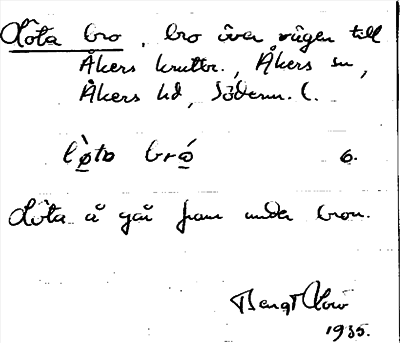 Löta bro, bro över vägen till
Åkers kruttbr., Åkers sn,
Åkers hd, Söderm. l.
lø̀ta brǿ 6.
Löta å går fram under bron.
Bengt
1935.